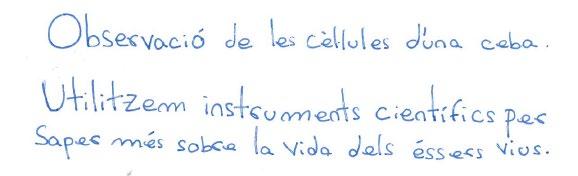 Observació de les cèl·lules d'una ceba.
Utilitzem instruments científics per
saper més sobre la vida dels éssers vius.